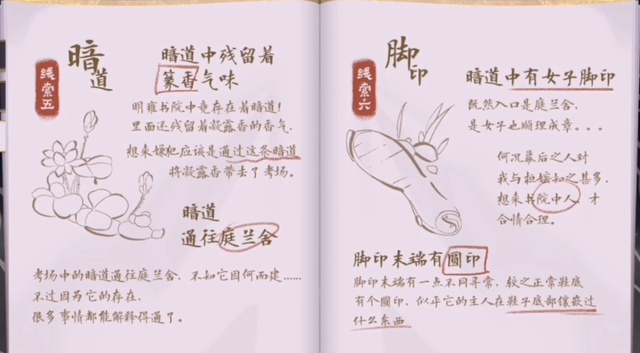 线索五
暗道
暗道中残留着
篆香气味
明雍书院中竟存在着暗道!
里面还残留着凝露香的香气.
想来嫌犯应该是通过这条暗道
将凝露香带去了考场。
暗道
通往庭兰舍
考场中的暗道通往庭兰舍,不知它因何而建......
不过因为它的存在,
很多事情都能解释得通了。
线索六
脚印
暗道中有女子脚印
既然入口是庭兰舍,
是女子也顺理成章。。。
何况幕后之人对
我与桓嬬知之甚多,
想来书院中人,才
合情合理。
脚印末端有圆印
脚印末端有一点不同寻常,较之正常鞋底
有个圆印,似乎它的主人在鞋子底部镶嵌过
什么东西